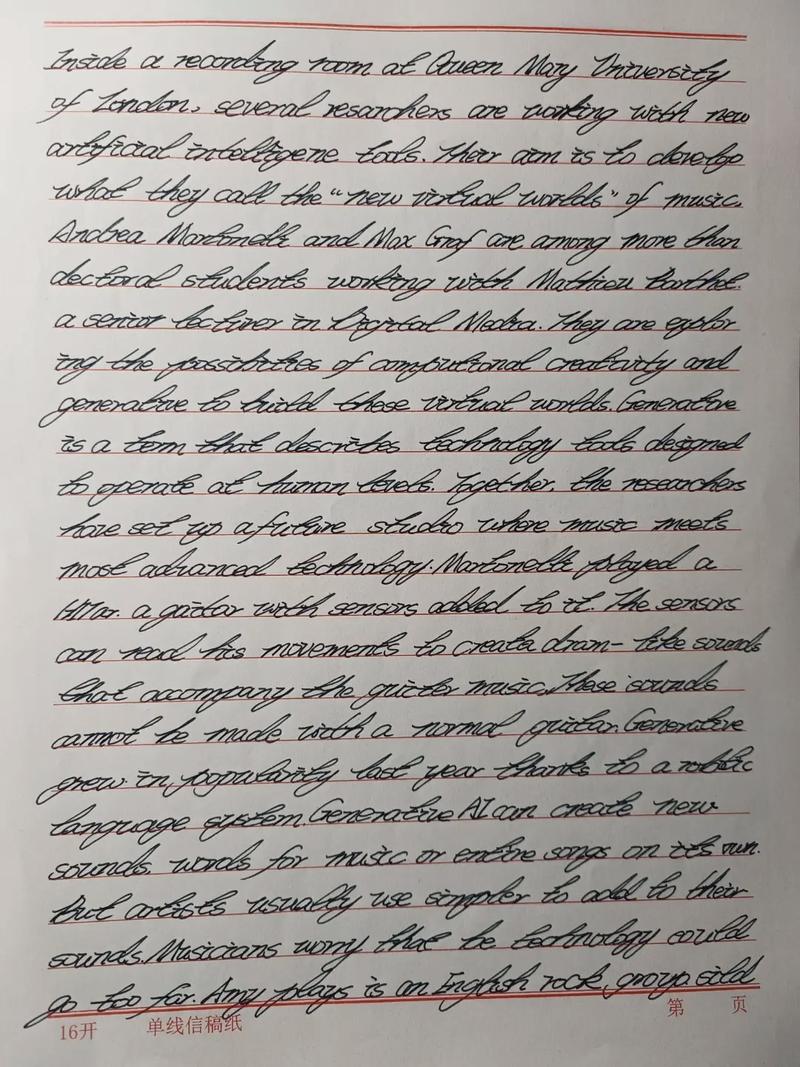 Inside a recording room at Queen Mary University
of London, several resarchers are working with new
artificial intelligene tools. Their aim is to develop
what they call the "new virtual worlds" of music.
Andrea Martonelli and Max Graf are among more than
doctoral students working with Mathieu Barthet.
a senior lecturer in Digital Media. They are explor
ing the possibilities of computional creativity and
generative to build these virtual worlds. Generative
is a term that describes technology tools designed
to operate at human levels. Together, the researchers
have set up a future studio where music meets
most advanced technology. Martonelli played a
HITar. a guitar with sensors added to it. The sensors
can read his movements to create dram- like sounds
that accompany the guitar music. These sounds
cannot be made with a normal guitar. Generative
grew in popularity last year thanks to a robotic
language system. Generative AI can create new
sounds. words for music or entire songs on its own.
But artists usually use simpler to add to their
sounds. Musicians worry that be technology could
go too far. Amy plays is an English rock group. sild
16开 单线信稿纸 第 页